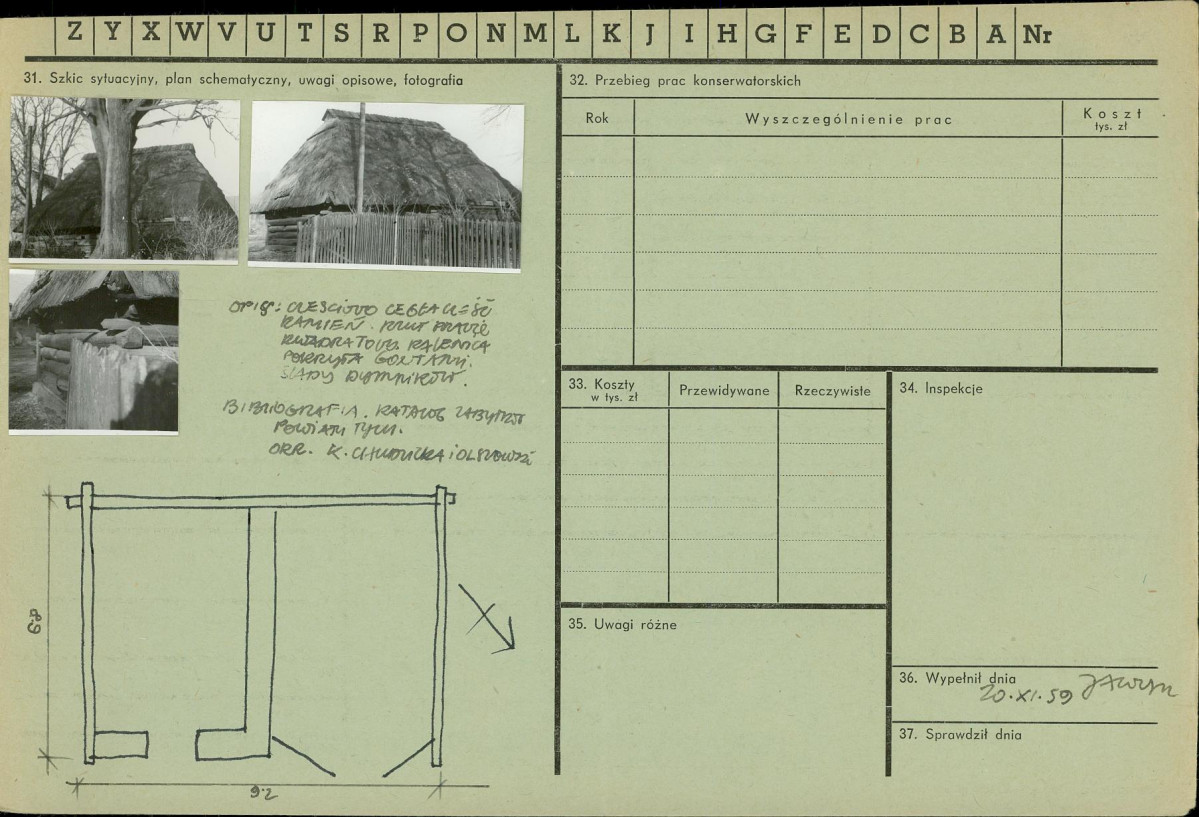 Z Y X W V U T S R P O N M L K J I H G F E D C B A Nr
31. Szkic sytuacyjny, plan schematyczny, uwagi opisowe, fotografia
OPIS:
KAMIEŃ.
KWADRATOWE. KALENICA
POKRYTA GONTAMI.
ŚLADY DYMNIKÓW.
BIBLIOGRAFIA. KATALOG ZABYTKÓW
POWIATU TYCH.
OPR. K. i OLSZOWSKI
6.8
7.6
32. Przebieg prac konserwatorskich
Rok
Wyszczególnienie prac
Koszt
tys. zł
33. Koszty
w tys. zł
Przewidywane
Rzeczywiste
34. Inspekcje
35. Uwagi różne
36. Wypełnił dnia
20.XI.59
37. Sprawdził dnia